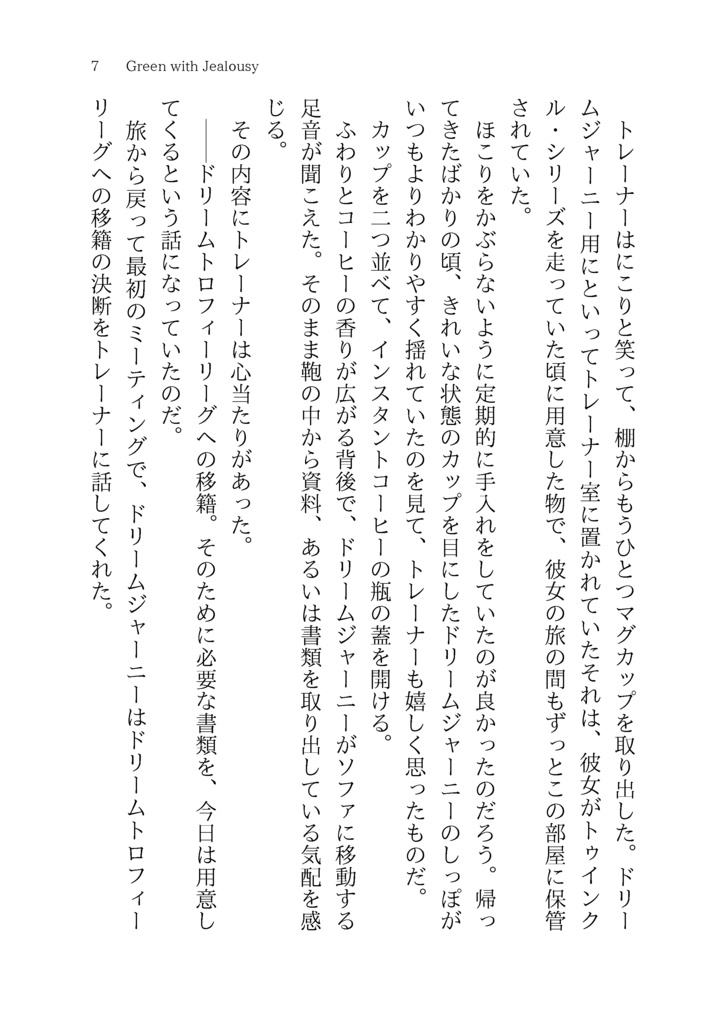 7 Green with Jealousy
トレーナーはにこりと笑って、棚からもうひとつマグカップを取り出した。ドリー
ムジャーニー用にといってトレーナー室に置かれていたそれは、彼女がトゥインク
ル・シリーズを走っていた頃に用意した物で、彼女の旅の間もずっとこの部屋に保管
されていた。
ほこりをかぶらないように定期的に手入れをしていたのが良かったのだろう。帰っ
てきたばかりの頃、きれいな状態のカップを目にしたドリームジャーニーのしっぽが
いつもよりわかりやすく揺れていたのを見て、トレーナーも嬉しく思ったものだ。
カップを二つ並べて、インスタントコーヒーの瓶の蓋を開ける。
ふわりとコーヒーの香りが広がる背後で、ドリームジャーニーがソファに移動する
足音が聞こえた。そのまま鞄の中から資料、あるいは書類を取り出している気配を感
じる。
その内容にトレーナーは心当たりがあった。
――ドリームトロフィーリーグへの移籍。そのために必要な書類を、今日は用意し
てくるという話になっていたのだ。
旅から戻って最初のミーティングで、ドリームジャーニーはドリームトロフィー
リーグへの移籍の決断をトレーナーに話してくれた。